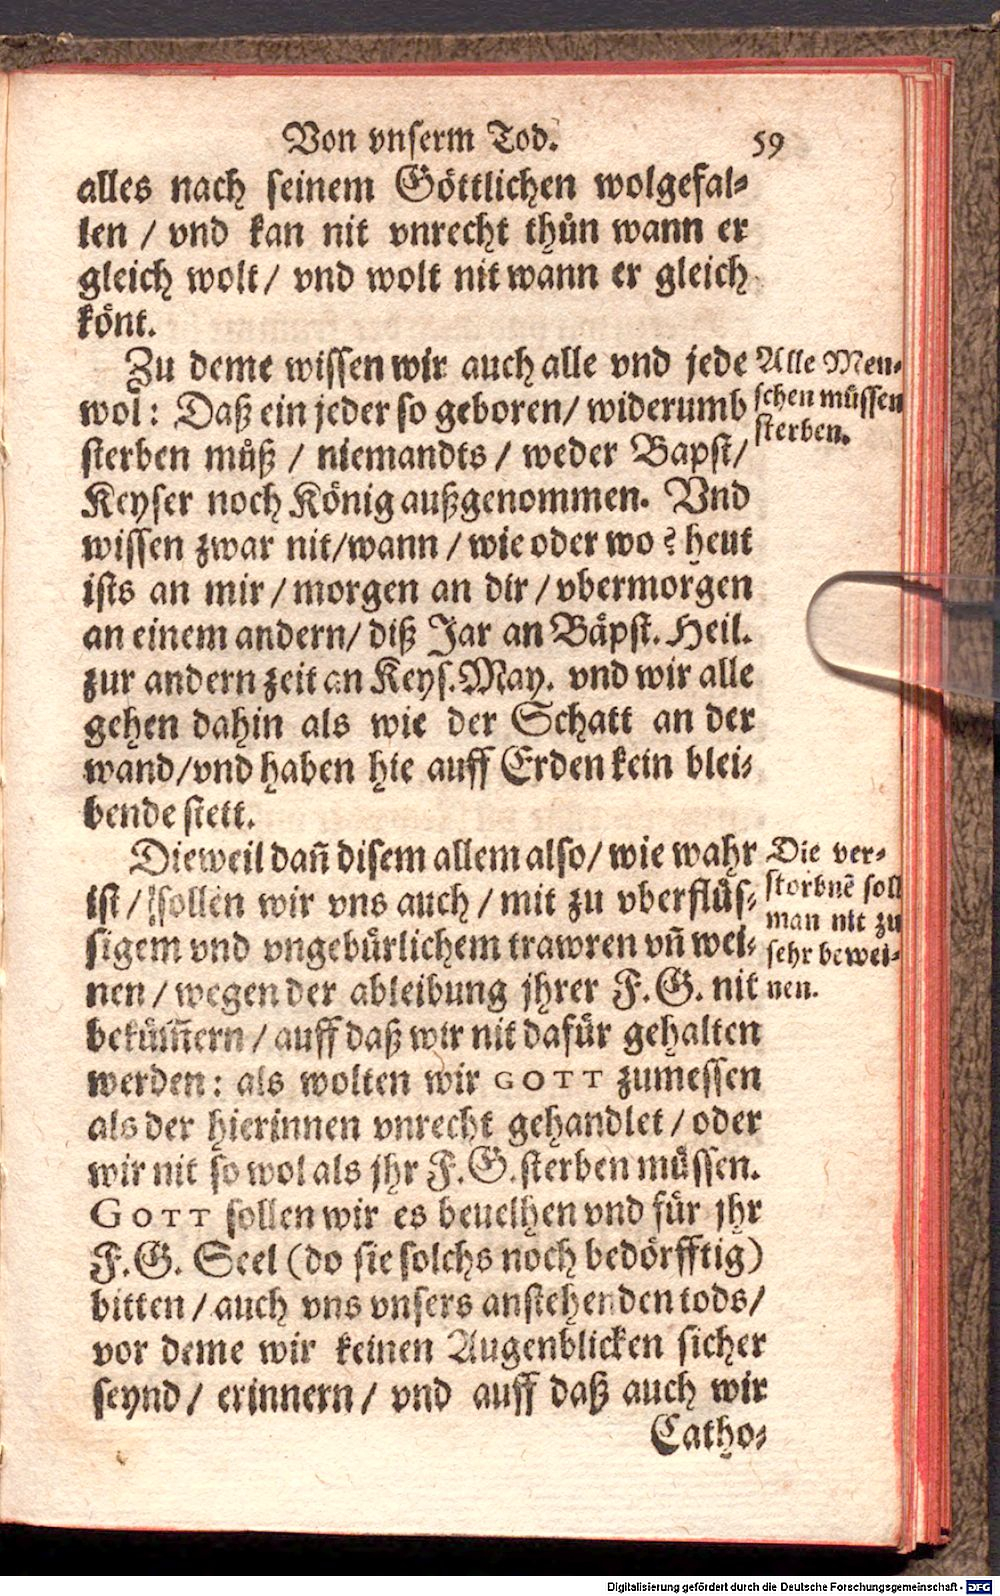 Von vnserm Tod. 59
alles nach seinem Göttlichen wolgefal-
len / vnd kan nit vnrecht thůn wann er
gleich wolt / vnd wolt nit wann er gleich
könt.
Zu deme wissen wir auch alle vnd jede
wol: Daß ein jeder so geboren / widerumb
sterben můß / niemandts / weder Bapst /
Keyser noch König außgenommen. Vnd
wissen zwar nit / wann / wie oder wo? heut
ists an mir / morgen an dir / vbermorgen
an einem andern / diß Jar an Bäpst. Heil.
zur andern zeit an Keys. May. vnd wir alle
gehen dahin als wie der Schatt an der
wand / vnd haben hie auff Erden kein blei-
bende stett.
Alle Men-
schen müssen
sterben.
Dieweil dañ disem allem also / wie wahr
ist / sollen wir vns auch / mit zu vberflüs-
sigem vnd vngebürlichem trawren vñ wei-
nen / wegen der ableibung jhrer F. G. nit
bekům̃ern / auff daß wir nit dafür gehalten
werden: als wolten wir GOTT zumessen
als der hierinnen vnrecht gehandlet / oder
wir nit so wol als jhr F. G. sterben müssen.
GOTT sollen wir es beuelhen vnd für jhr
F. G. Seel (do sie solchs noch bedörfftig)
bitten / auch vns vnsers anstehenden tods /
vor deme wir keinen Augenblicken sicher
seynd / erinnern / vnd auff daß auch wir
Catho-
Die ver-
storbnē soll
man nit zu
sehr bewei-
nen.
Digitalisierung gefördert durch die Deutsche Forschungsgemeinschaft - DFG